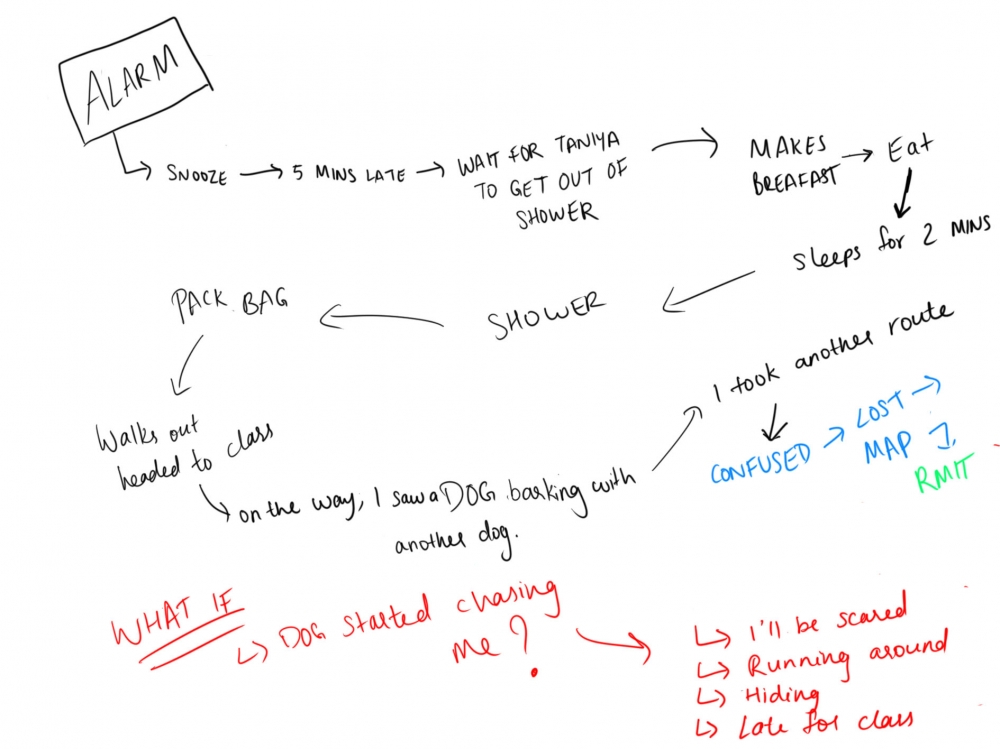 ALARM
SNOOZE
5 MINS LATE
WAIT FOR TANIYA
TO GET OUT OF
SHOWER
MAKES
BREAFAST
Eat
sleeps for 2 MINS
SHOWER
PACK BAG
Walks out
headed to class
on the way, I saw a DOG barking with
another dog.
I took another route
CONFUSED
LOST
MAP
RMIT
WHAT IF
DOG started chasing
me?
I'll be scared
Running around
Hiding
Late for class